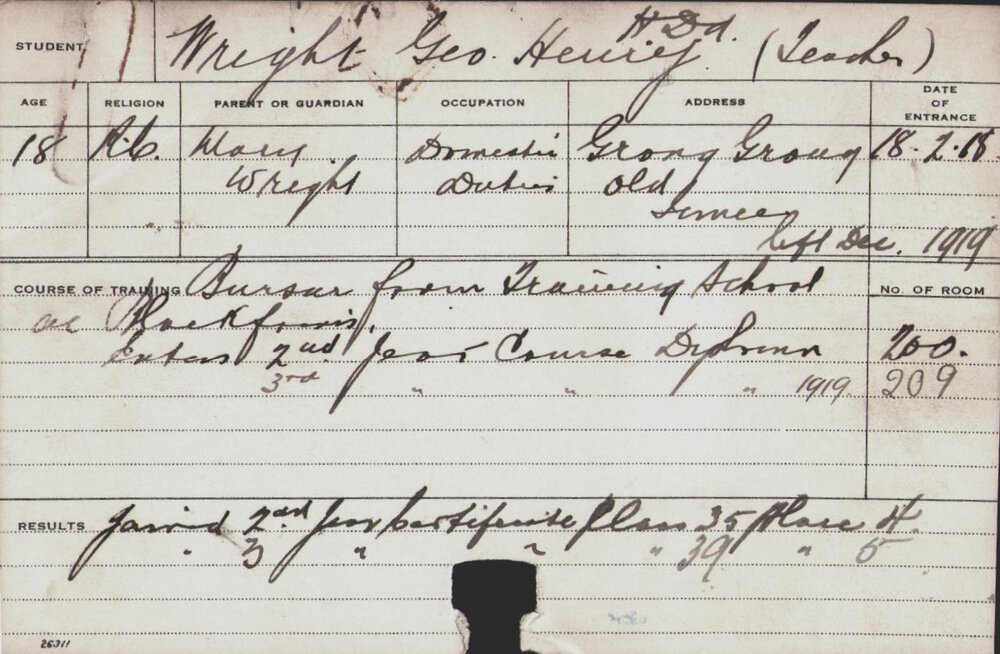 H Dd.
STUDENT Wright Geo. Henry (Teacher)
AGE RELIGION PARENT OR GUARDIAN OCCUPATION ADDRESS DATE OF ENTRANCE
18 R.C. Mary Domestic Grong Grong 18.2.18
Wright Duties Old
Junee
left Dec. 1919
COURSE OF TRAINING Bursar from Training School No. OF ROOM
at Blackfriars.
Enters 2nd Year Course Diploma 200.
3rd " " " 1919 209
RESULTS Gained 2nd Year Certificate Class 35 Place 4.
" 3 " " " 39 " 5
26311